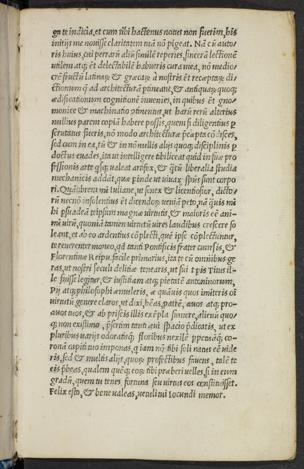 gn te indicia, et cum tibi hactenus notus non fuerim, his
initijs me nouisse claritatem tuā nō pigeat. Nā cū auto
ris huius, cui perrarū aliū simile reperies, sincerā lectionē
utilem atq; et delectabilē habueris cura mea, nō medio
crē fructū latinæ & græcæ a nostris et receptæ di
ctionum q̄ ad architecturā ptineant, & antiquæ quoq;
ædificationum cognitionē inuenies, in quibus et gno
monice & machinatio ptinentur, ut harū rerū alterius
nullius parem copiā habere possis, quem si diligentius p
scrutatus fueris, nō modo architecturæ
sed cum in ea, tū & in nō nullis alijs quoq; disciplinis p
doctus euades, ita ut intelligere tibi liceat quid in sua pro
fessionis arte
mechanicis addāt, quæ pinde ut uiuax spūs sunt corpo
ri. Quāobrem mi Iuliane, ut scurr & licentiosior, dicto
rū necnō insolentius ēt dicendoq; ueniā peto, nā quis mi
hi psuadeā te ipsum magnæ uirtutis, & maioris eē ani
mi uirū, quoniā tamen uirtuti uires laudibus crescere so
leant, et ab eo ardentius cōplecti, quē ipsæ cōplectuntur,
te reuerenter moneo, qd tanti Pontificis frater cum sis, &
Florentinæ Reipu. facile primarius, ita te cū omnibus ge
ras, ut nostri seculi delitiæ tenearis, ut sui tpis Titus il
le fuisse legitur, & iustitiam atq; pietatē antoninorum,
Pij atq; philosophi æmuleris, a quāuis quos imiteris oī
uirtutū genere claros, ut dixi, heas, patrē, auos atq; pro
auos tuos, & ab priscis illis exēpla sumere, alienū quo
q; non existimo, psertim tanti anī spacio pdicatis, ut ex
pluribus uarijs odoratisq; floribus nexilē ppetuāq; co
ronā capiti tuo imponas, q iam nō tibi soli natus eē uide
ris, sed & multis alijt, quoq; profectibus fauens, tale te
eis pbeas, qualem quēq; eoq; tibi præberi uelles, si in eum
gradū, quem tu tenes, fortuna seu uirtus eos constituisset.
Felix esto, & bene ualeas, uetulini Iocundi memor.